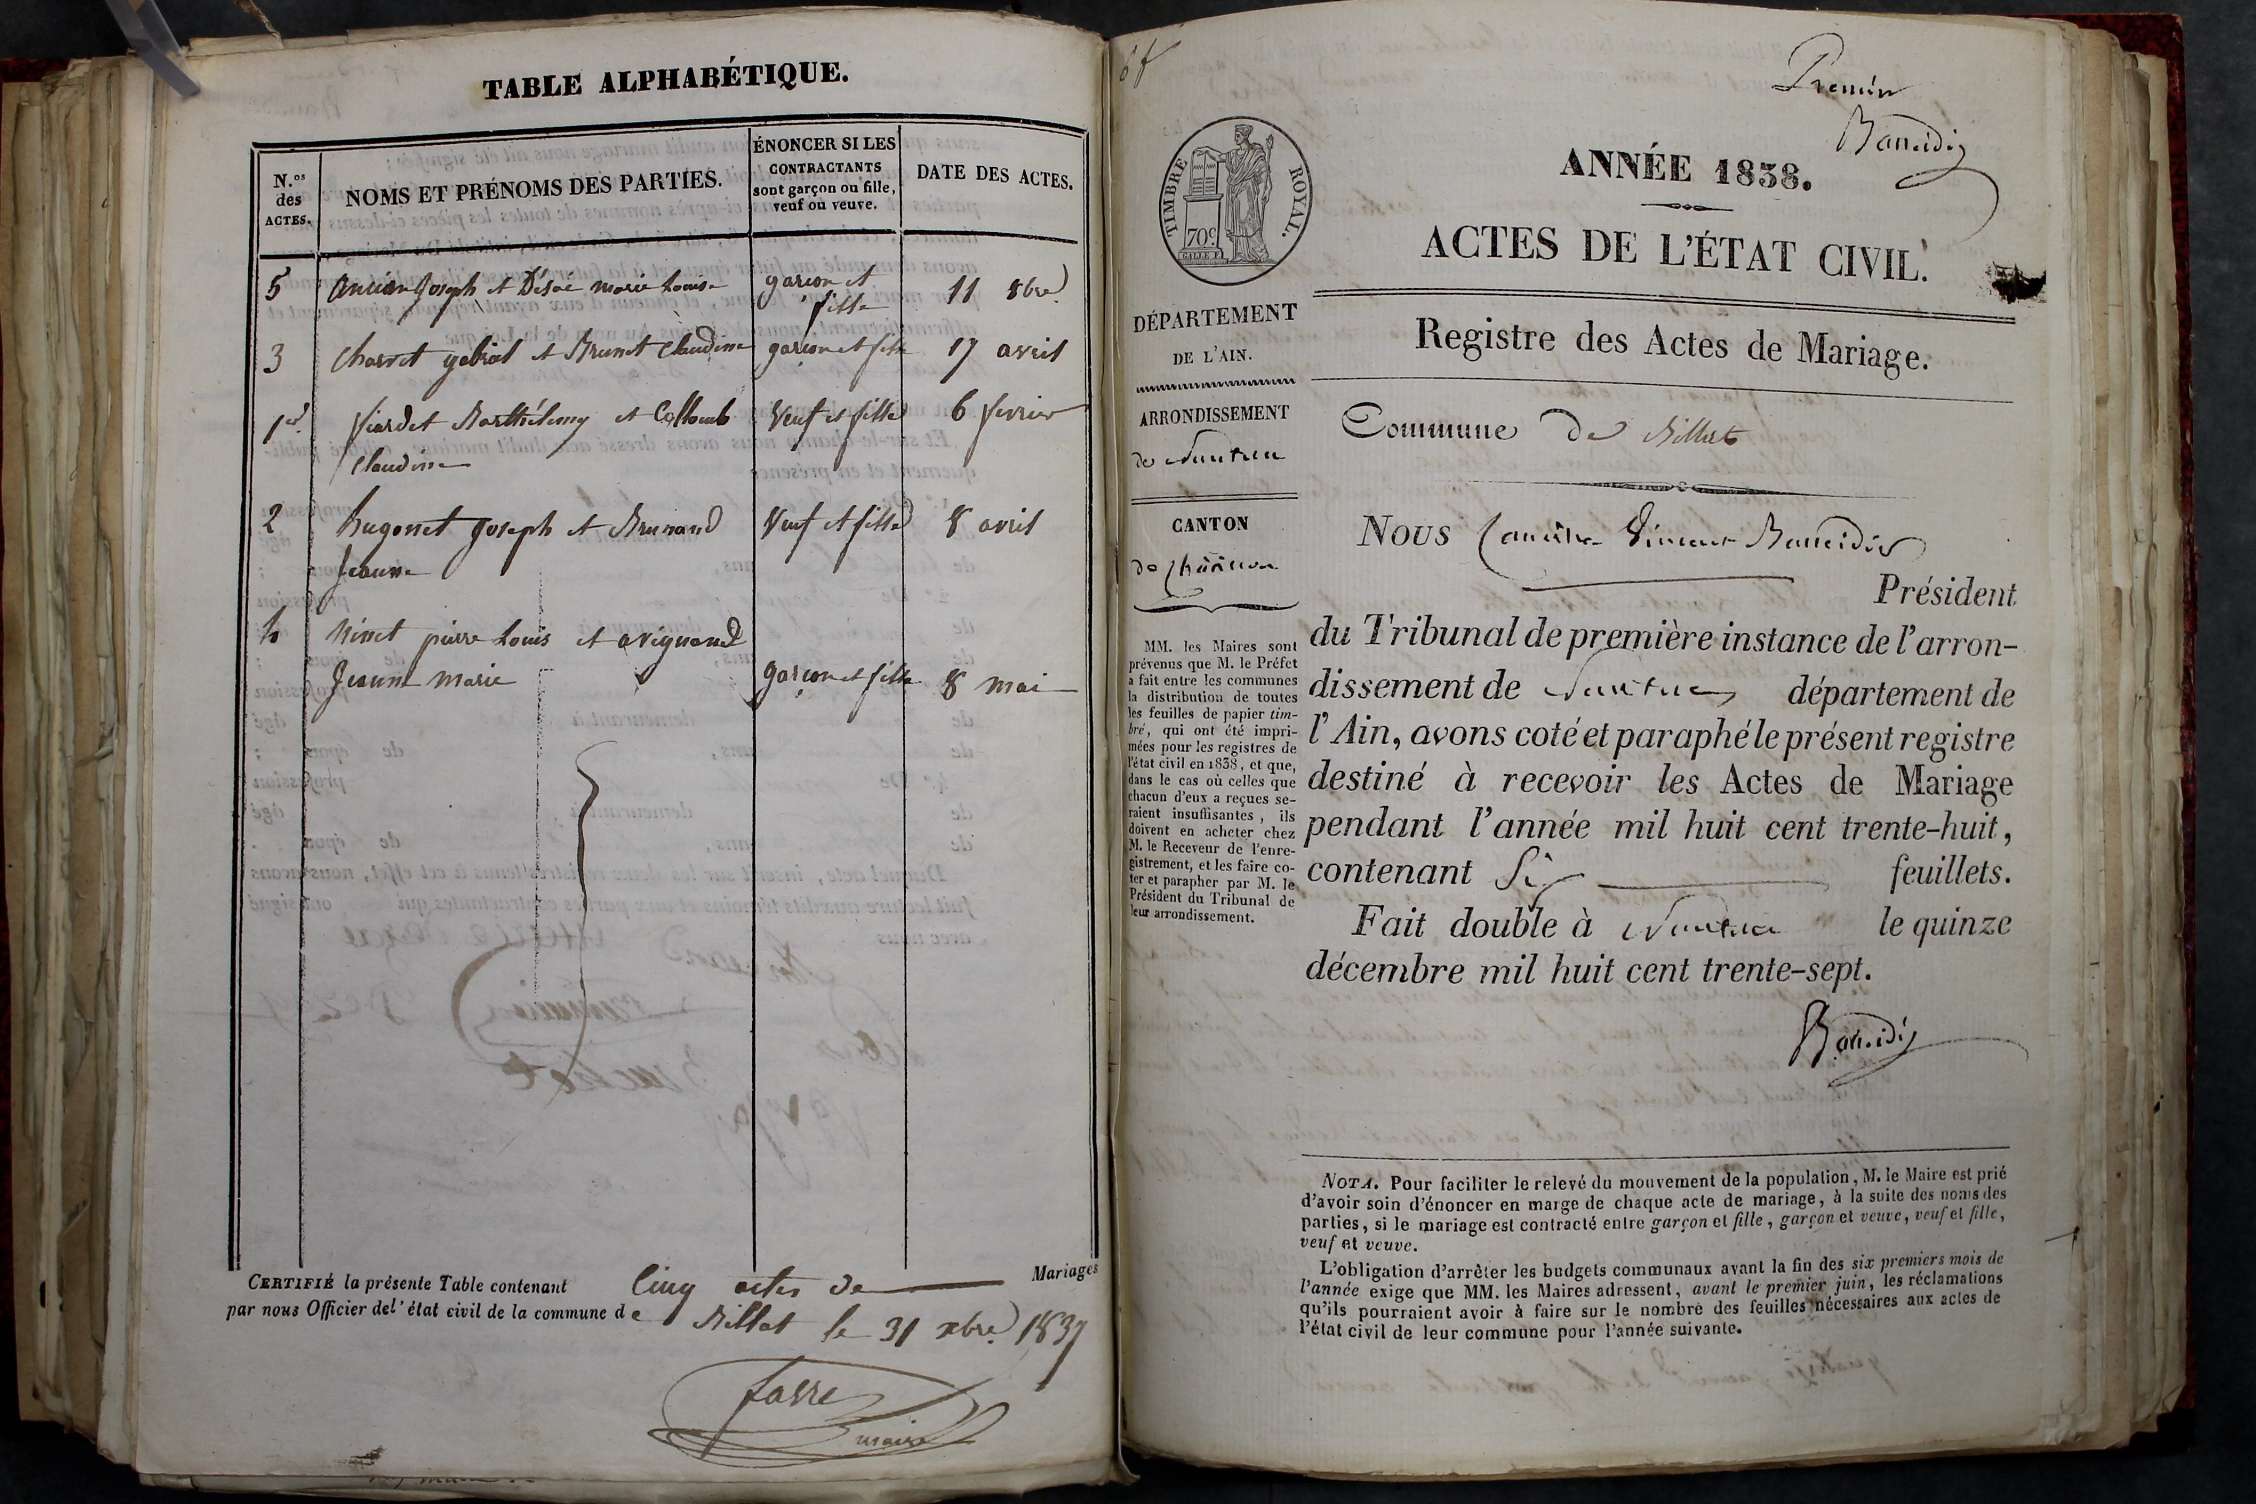 TABLE ALPHABÉTIQUE.
N.os des ACTES.
NOMS ET PRÉNOMS DES PARTIES.
ÉNONCER SI LES
CONTRACTANTS
sont garçon ou fille,
veuf ou veuve.
DATE DES ACTES.
5 Joseph et Désiré marie Louise garçon et fille 11 8bre
3 Charvet gabriel et Brunet Claudine garçon et fille 17 avril
1er Barthélemy et Collomb Veuf et fille 6 février
Claudine
2 hugonnet Joseph et Brunand Veuf et fille 8 avril
Jeanne
4 Ninet pierre Louis et avignand
Jeanne marie garçon et fille 8 mai
CERTIFIÉ la présente Table contenant Cinq actes de Mariages
par nous Officier de l'état civil de la commune de Billiat le 31 xbre 1837
favre
maire
Premier
ANNÉE 1838.
ACTES DE L'ÉTAT CIVIL.
TIMBRE ROYAL.
70c
DÉPARTEMENT
DE L'AIN.
ARRONDISSEMENT
de Nantua
CANTON
de Chatillon
MM. les Maires sont
prévenus que M. le Préfet
a fait entre les communes
la distribution de toutes
les feuilles de papier tim-
bré, qui ont été impri-
mées pour les registres de
l'état civil en 1838, et que,
dans le cas où celles que
chacun d'eux a reçues se-
raient insuffisantes, ils
doivent en acheter chez
M. le Receveur de l'enre-
gistrement, et les faire co-
ter et parapher par M. le
Président du Tribunal de
leur arrondissement.
Registre des Actes de Mariage.
Commune de Billiat
NOUS Vincent
Président
du Tribunal de première instance de l'arron-
dissement de Nantua département de
l'Ain, avons coté et paraphé le présent registre
destiné à recevoir les Actes de Mariage
pendant l'année mil huit cent trente-huit,
contenant Six feuillets.
Fait double à Nantua le quinze
décembre mil huit cent trente-sept.
NOTA. Pour faciliter le relevé du mouvement de la population, M. le Maire est prié
d'avoir soin d'énoncer en marge de chaque acte de mariage, à la suite des noms des
parties, si le mariage est contracté entre garçon et fille, garçon et veuve, veuf et fille,
veuf et veuve.
L'obligation d'arrêter les budgets communaux avant la fin des six premiers mois de
l'année exige que MM. les Maires adressent, avant le premier juin, les réclamations
qu'ils pourraient avoir à faire sur le nombre des feuilles nécessaires aux actes de
l'état civil de leur commune pour l'année suivante.